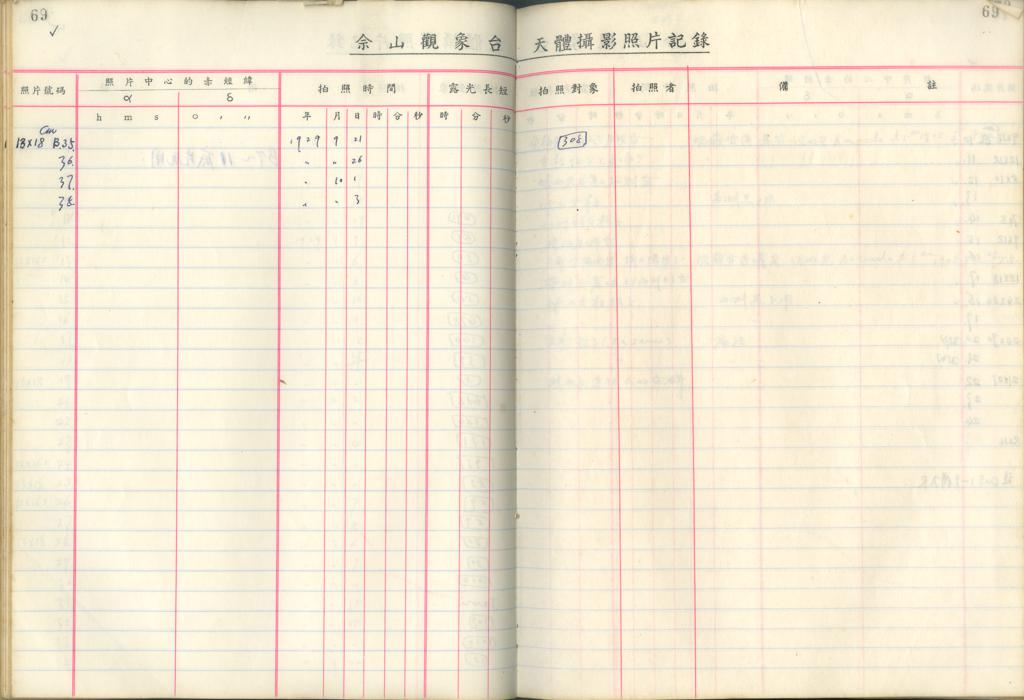 69
69
✓
佘山觀象台 天體攝影照片記錄
照片號碼 照片中心的赤經緯 拍照時間 露光長短 拍照對象 拍照者 備註
α δ
h m s ○ ′ ″ 年 月 日 時 分 秒 時 分 秒
cm
13×18 B.35. 1929 9 21 306
36. 〃 〃 26
37. 〃 10 1
38. 〃 〃 3